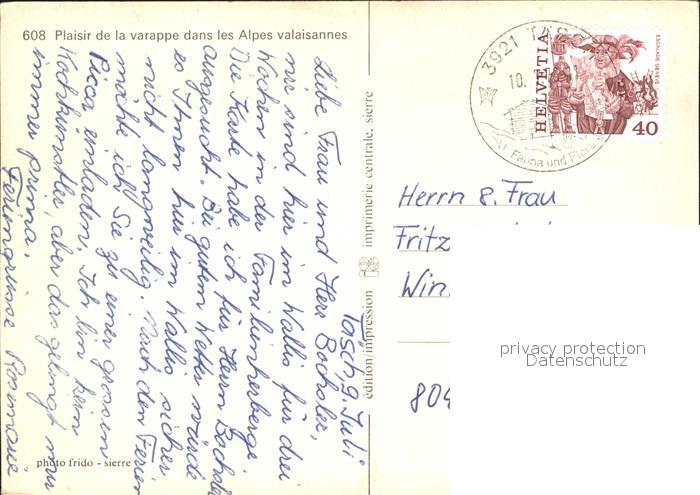 608 Plaisir de la varappe dans les Alpes valaisannes
Täsch 9. Juli
Liebe Frau und Herr Bachsler,
wir sind hier im Wallis für drei
Wochen in der Familienherberge.
Die Karte habe ich für Herrn
ausgesucht. Bei gutem Wetter würde
es Ihnen hier im Wallis sicher
nicht langweilig. Nach den Ferien
möchte ich Sie zu einer grossen
Pizza einladen. Ich bin kein
Kochkünstler, aber das gelingt mir
immer prima.
Feriengrüsse Rosmarie
photo frido - sierre
édition/impression imprimerie centrale, sierre
3921 TÄSCH
10.
Fauna und Flora
HELVETIA
ESCALADE GENÈVE
40
Herrn & Frau
Fritz
Win
804
privacy protection
Datenschutz